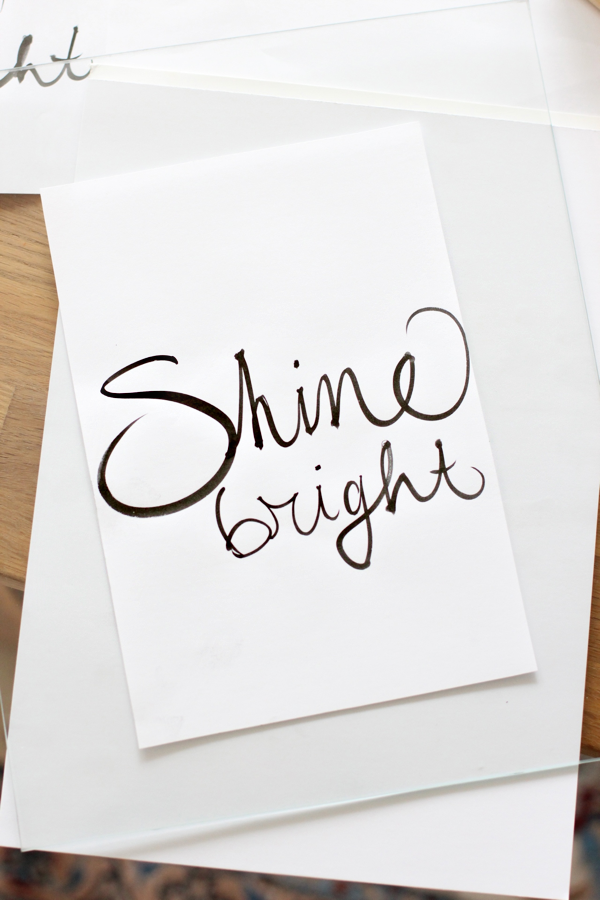 ht
Shine
bright